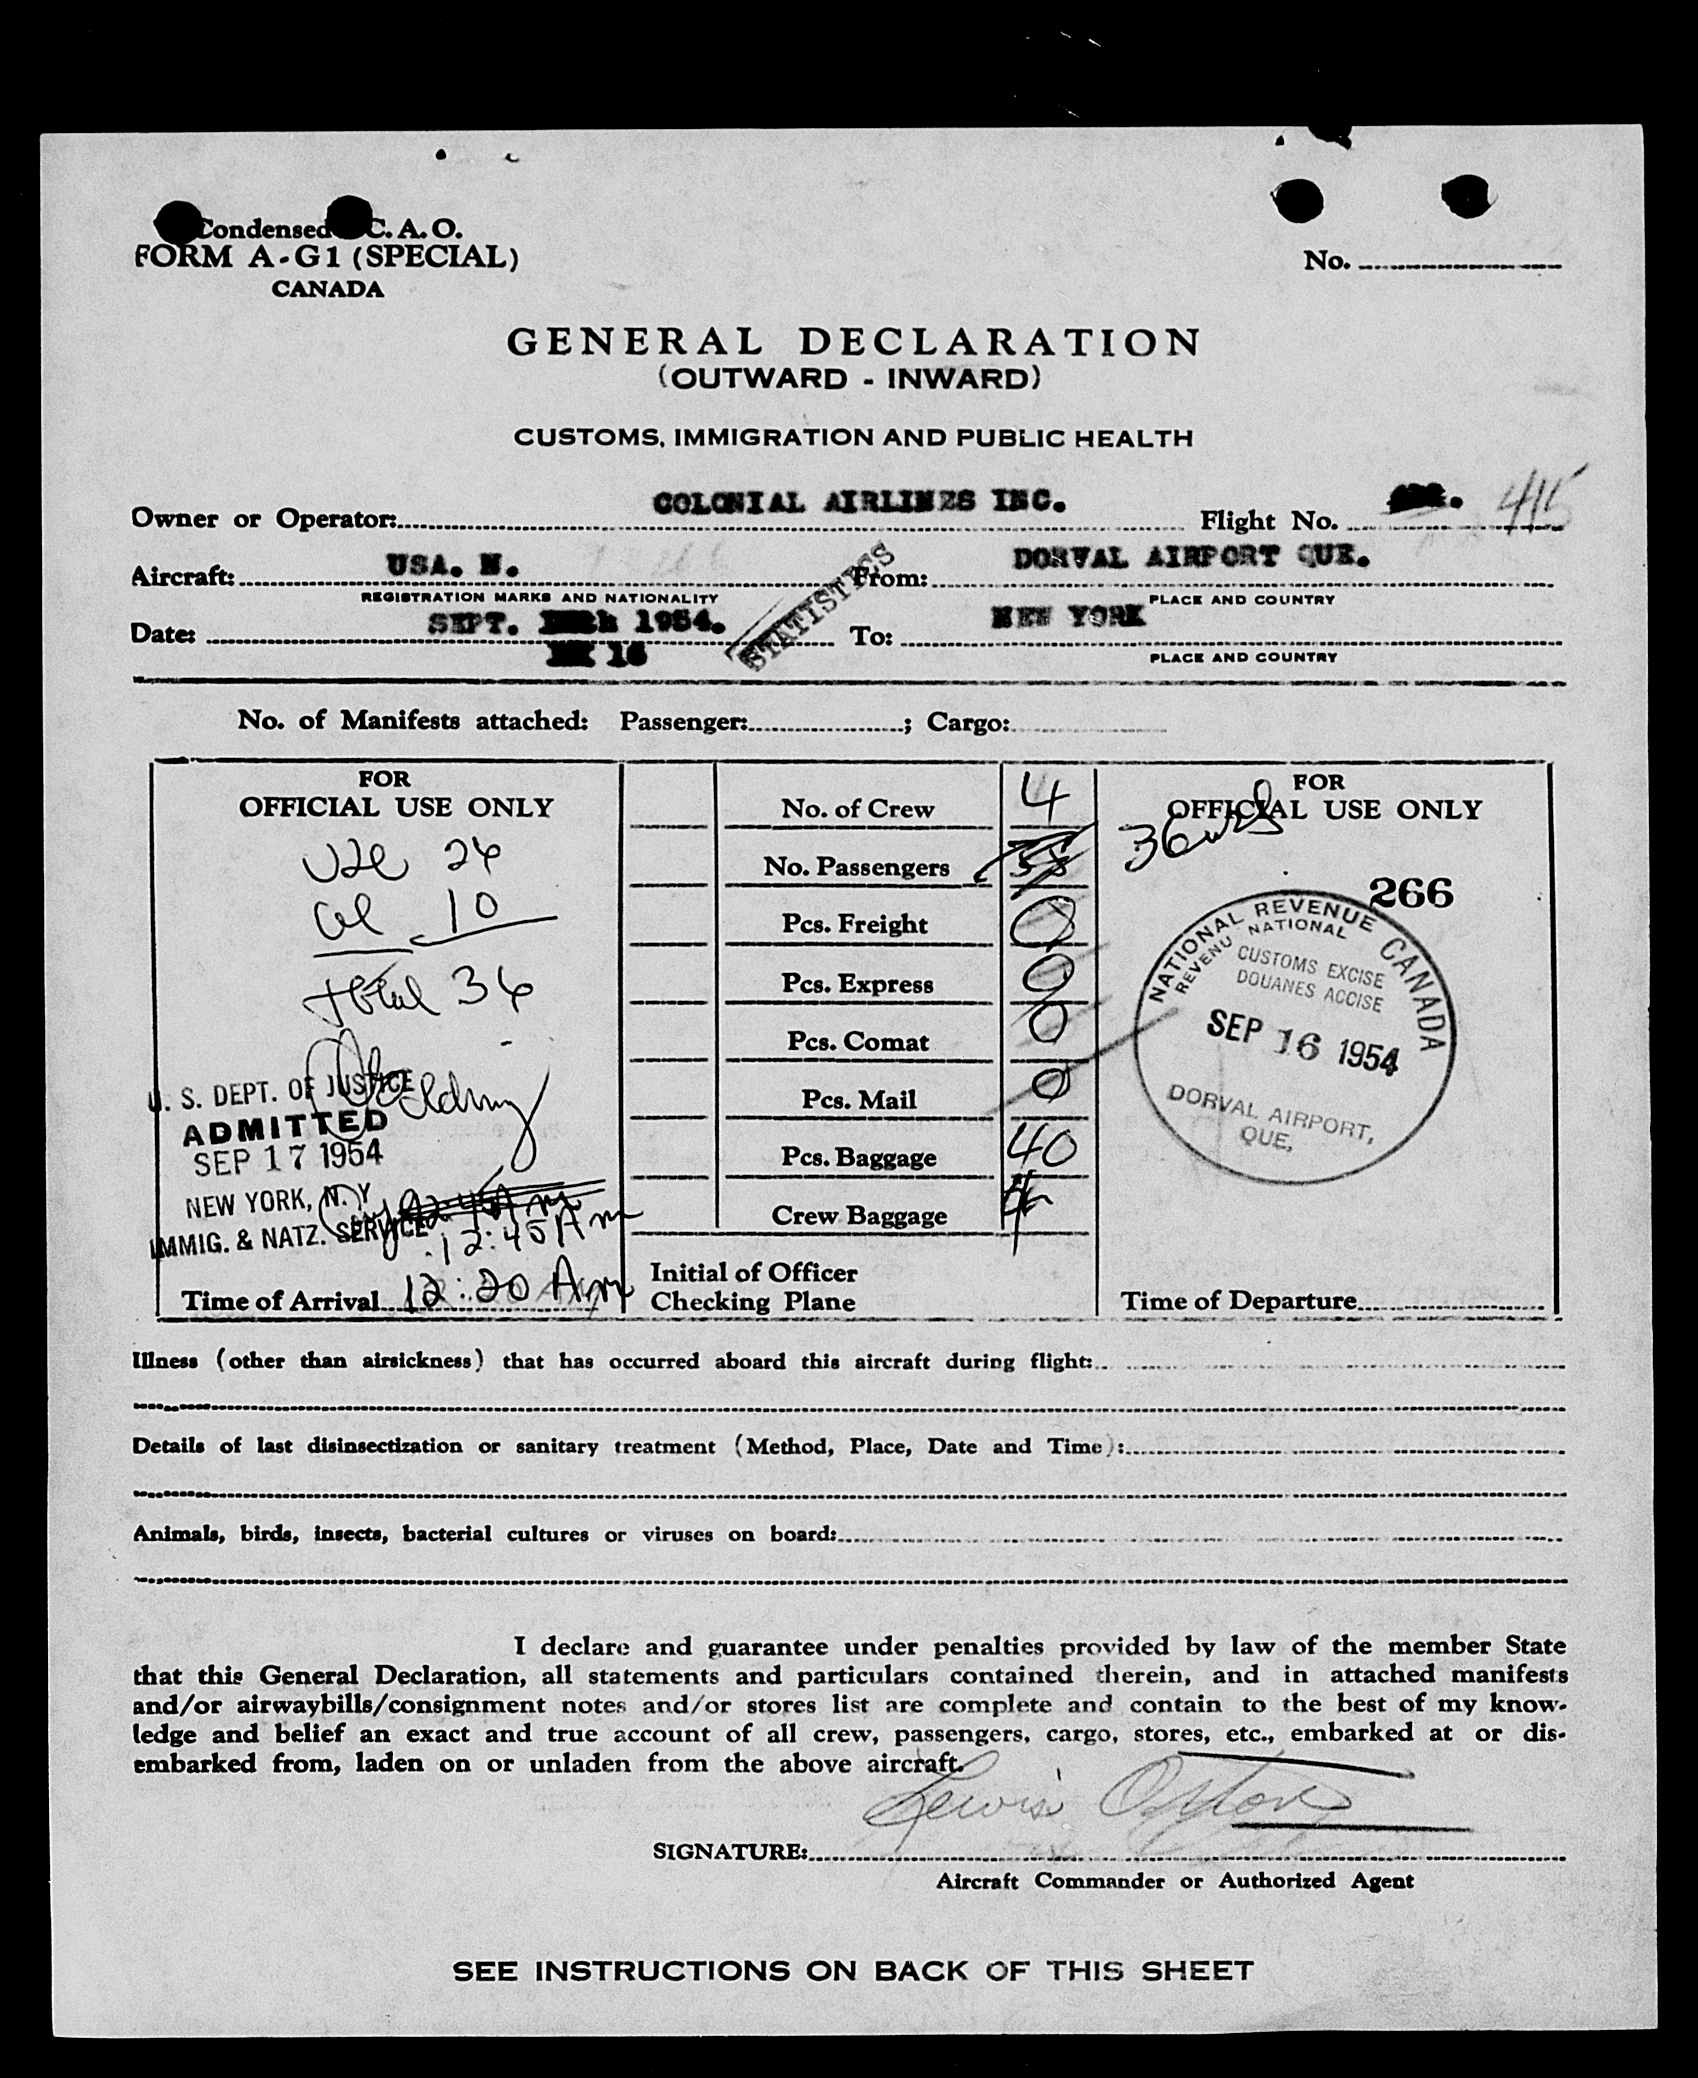 Condensed C. A. O.
FORM A-G1 (SPECIAL)
CANADA
No.
GENERAL DECLARATION
(OUTWARD - INWARD)
CUSTOMS, IMMIGRATION AND PUBLIC HEALTH
Owner or Operator: COLONIAL AIRLINES INC. Flight No. 415
Aircraft: USA. N. From: DORVAL AIRPORT QUE.
REGISTRATION MARKS AND NATIONALITY PLACE AND COUNTRY
STATISTICS
Date: SEPT. 1954. To: NEW YORK
16
PLACE AND COUNTRY
No. of Manifests attached: Passenger: ; Cargo:
FOR
OFFICIAL USE ONLY
USC 26
al 10
total 36
U. S. DEPT. OF JUSTICE
ADMITTED
SEP 17 1954
NEW YORK, N. Y.
IMMIG. & NATZ. SERVICE
12:45 Am
Time of Arrival 12:20 Am
No. of Crew 4
No. Passengers
Pcs. Freight 0
Pcs. Express 0
Pcs. Comat 0
Pcs. Mail 0
Pcs. Baggage 40
Crew Baggage 4
Initial of Officer
Checking Plane
FOR
OFFICIAL USE ONLY
36
266
NATIONAL REVENUE CANADA
REVENU NATIONAL
CUSTOMS EXCISE
DOUANES ACCISE
SEP 16 1954
DORVAL AIRPORT,
QUE,
Time of Departure
Illness (other than airsickness) that has occurred aboard this aircraft during flight:
Details of last disinsectization or sanitary treatment (Method, Place, Date and Time):
Animals, birds, insects, bacterial cultures or viruses on board:
I declare and guarantee under penalties provided by law of the member State
that this General Declaration, all statements and particulars contained therein, and in attached manifests
and/or airwaybills/consignment notes and/or stores list are complete and contain to the best of my know-
ledge and belief an exact and true account of all crew, passengers, cargo, stores, etc., embarked at or dis-
embarked from, laden on or unladen from the above aircraft.
Lewis
SIGNATURE:
Aircraft Commander or Authorized Agent
SEE INSTRUCTIONS ON BACK OF THIS SHEET